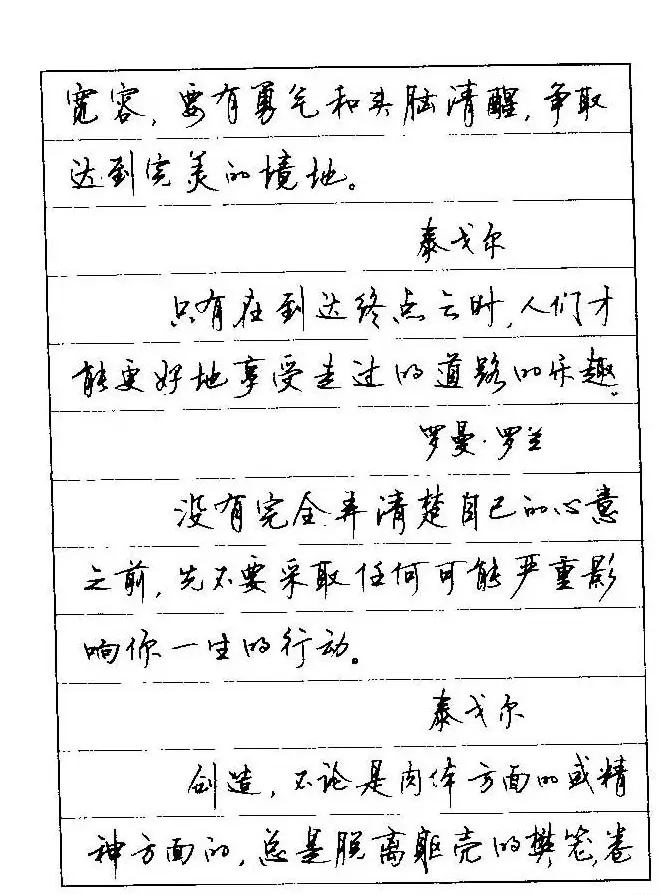 宽容，要有勇气和头脑清醒，争取
达到完美的境地。
泰戈尔
只有在到达终点之时，人们才
能更好地享受走过的道路的乐趣。
罗曼·罗兰
没有完全弄清楚自己的心意
之前，先不要采取任何可能严重影
响你一生的行动。
泰戈尔
创造，不论是肉体方面的或精
神方面的，总是脱离躯壳的樊笼，卷